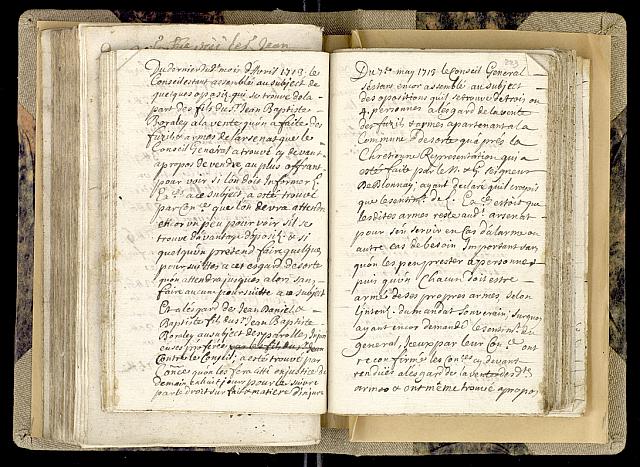 Du dernier du dt mois d'Avril 1713: le
Conseil estant assemblés au subject de
quelques oposit. qui se trouve de la
part des fils du sr Jean Baptiste
a la vente qu'on a faite des
fuzils & armes de l'arsenat que le
Conseil General a trouvé cy devant
a propos de vendre au plus offrant
pour voir si l'on dois Informer
a ce subject a esté trouvé
par que l'on devra attendre
encor un peu pour voir s'il se
trouve davantage d'oposit. & si
quelqu'un pretend faire quelques
poursuittes a cet esgard de sorte
qu'on attendra jusques alors sans
faire aucune poursuitte a ce subject
Et a l'esgard des Jean Daniel &
Baptiste fils du sr Jean Baptiste
au subject des parolles
proferées
Contre le Conseil, a esté trouvé par
qu'on les fera citté en justice de
demain en huit jours pour le suivre
par le droit sur fait & matiere d'injure
223
Du 7e may 1713 le Conseil General
s'estans encor assemblé au subject
des opositions qu'il se trouve de trois ou
4 personnes a l'esgard de la vente
des fuzils & armes apartenant a la
Commune De sorte que près la
Chretienne Representation qui a
esté faite par le N. & G. Seigneur
De Blonnay; ayant declaré qu'il
que le estoit que
lesdites armes reste audt arsenat
pour s'en servir en cas d'alarme ou
autre cas de besoin Important sans
qu'on les peu prester a personne
puis qu'un Chacun doit estre
armé de ses propres armes, selon
l'intent. du mandat souverain, surquoy
ayant encor demandé le sentim. du
general, Iceux par leur ont
reconfirmé les cy devant
rendues a l'esgard de la vente des dtes
armes & ont même trouvé a propos